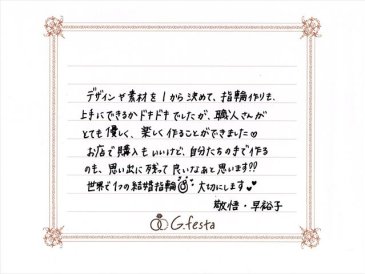 デザインや素材を1から決めて、指輪作りも、
上手にできるかドキドキでしたが、職人さんが
とても優しく、楽しく作ることができました♡
お店で購入もいいけど、自分たちのまで作る
のも、思い出に残って良いなぁと思います!!
世界で1つの結婚指輪💍大切にします♥♥
敬悟・早裕子
G.festa